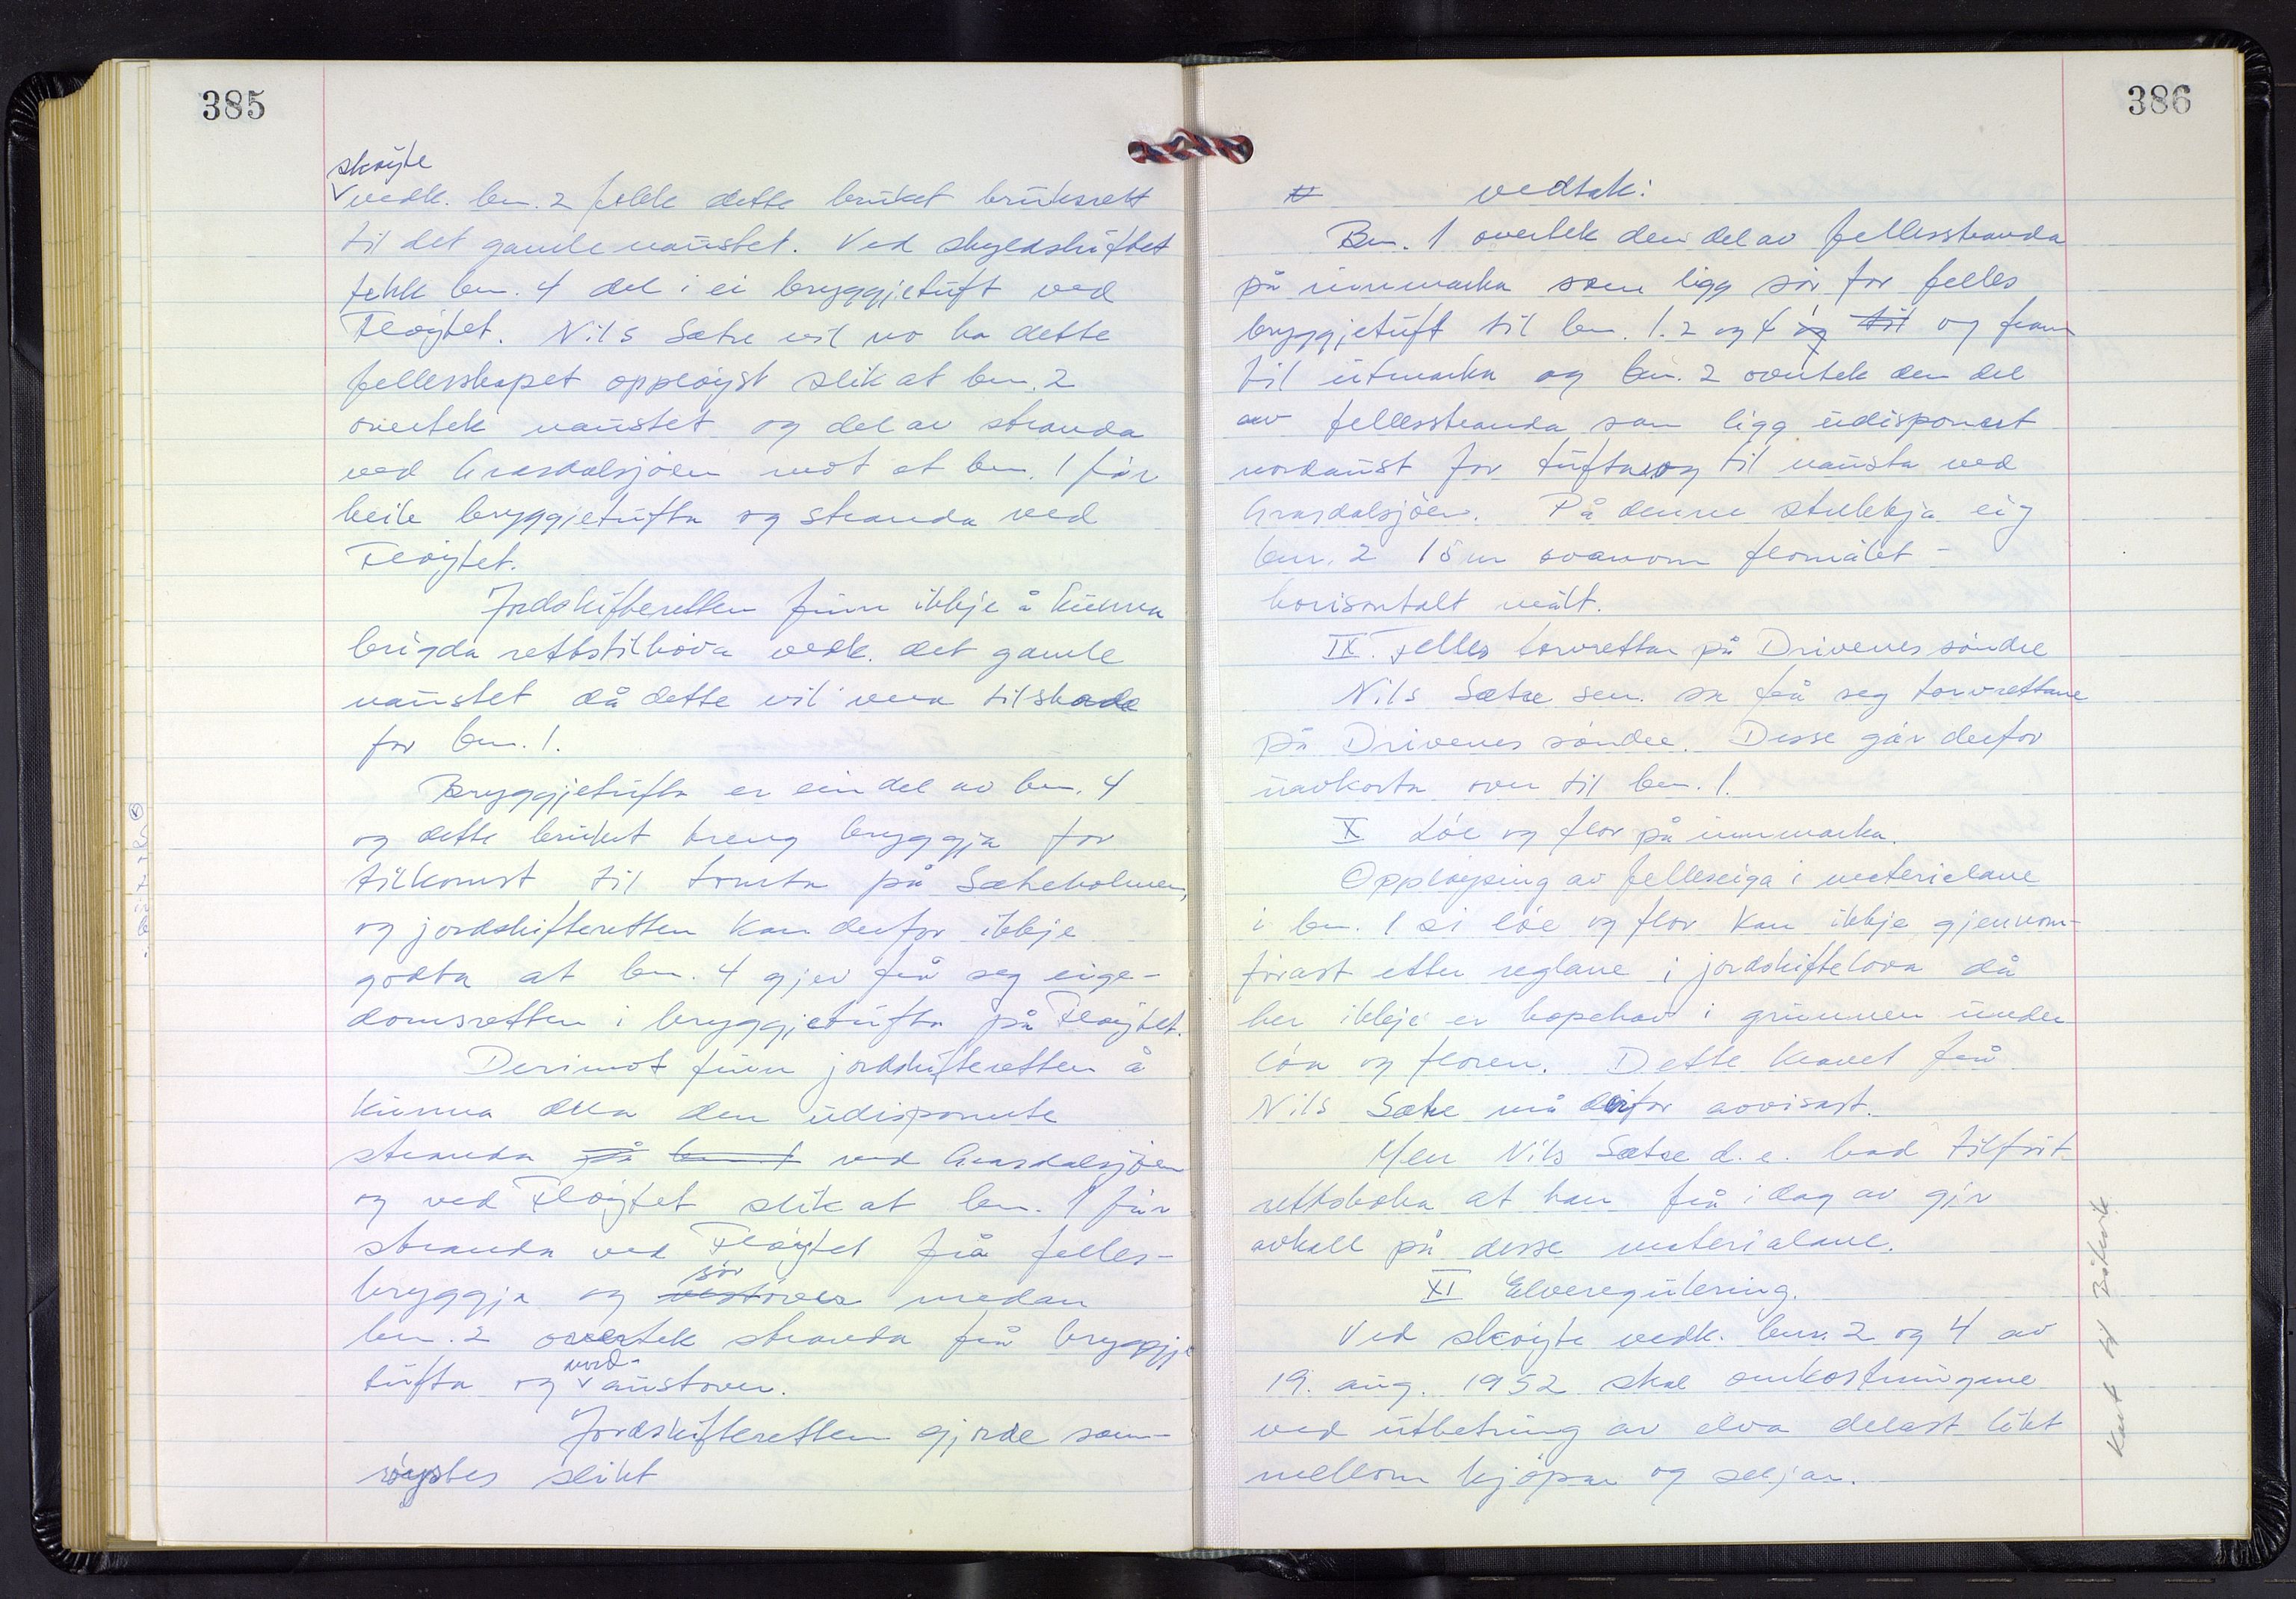 385
skøyte
vedk. bnr. 2 fekk dette bruket bruksrett
til det gamle naustet. Ved skyldskiftet
fekk bnr. 4 del i ei bryggjetuft ved
Fløytet. Nils Sætre vil no ha dette
fellesskapet oppløyst slik at bnr. 2
overtek naustet og del av stranda
ved Grasdalsjøen mot at bnr. 1 får
heile bryggjetufta og stranda ved
Fløytet.
Jordskifteretten finn ikkje å kunna
brigda rettstilhøva vedk. det gamle
naustet då dette vil vera til skade
for bnr. 1.
Bryggjetufta er ein del av bnr. 4
og dette bruket treng bryggja for
tilkomst til tomta på Sætreholmen,
og jordskifteretten kan derfor ikkje
godta at bnr. 4 gjev frå seg eige-
domsretten i bryggjetufta på Fløytet.
Derimot finn jordskifteretten å
kunna dela den udisponerte
stranda på bnr. 1 ved Grasdalsjøen
og ved Fløytet slik at bnr. 1 får
stranda ved Fløytet frå felles-
sør
bryggja og vestover medan
bnr. 2 overtek stranda frå bryggje
nord-
tufta og austover.
Jordskifteretten gjorde sam-
røystes slikt
386
vedtak:
Bnr. 1 overtek den del av fellesstranda
på innmarka som ligg sør for felles
bryggjetuft til bnr. 1. 2 og 4 og til og fram
til utmarka og bnr. 2 overtek den del
av fellesstranda som ligg udisponert
nordaust for tufta og til nausta ved
Grasdalsjøen. På denne stubbja eig
bnr. 2 15 m ovanom flomålet -
horisontalt målt.
IX. Felles torvrettar på Drivenes søndre
Nils Sætre sen. sa frå seg torvrettane
på Drivenes søndre. Desse går derfor
uavkorta over til bnr. 1.
X Løe og flor på innmarka.
Oppløysing av felleseiga i materialane
i bnr. 1 si løe og flor kan ikkje gjennom-
førast etter reglane i jordskiftelova då
her ikkje er hopehav i grunnen under
løa og floren. Dette kravet frå
Nils Sætre må derfor avvisast.
Men Nils Sætre d.e. bad tilført
rettsboka at han frå i dag av gir
avkall på desse materialane.
XI Elveregulering.
Ved skøyte vedk. bnr. 2 og 4 av
19. aug. 1952 skal omkostningane
ved utbetring av elva delast likt
mellom kjøpar og seljar.